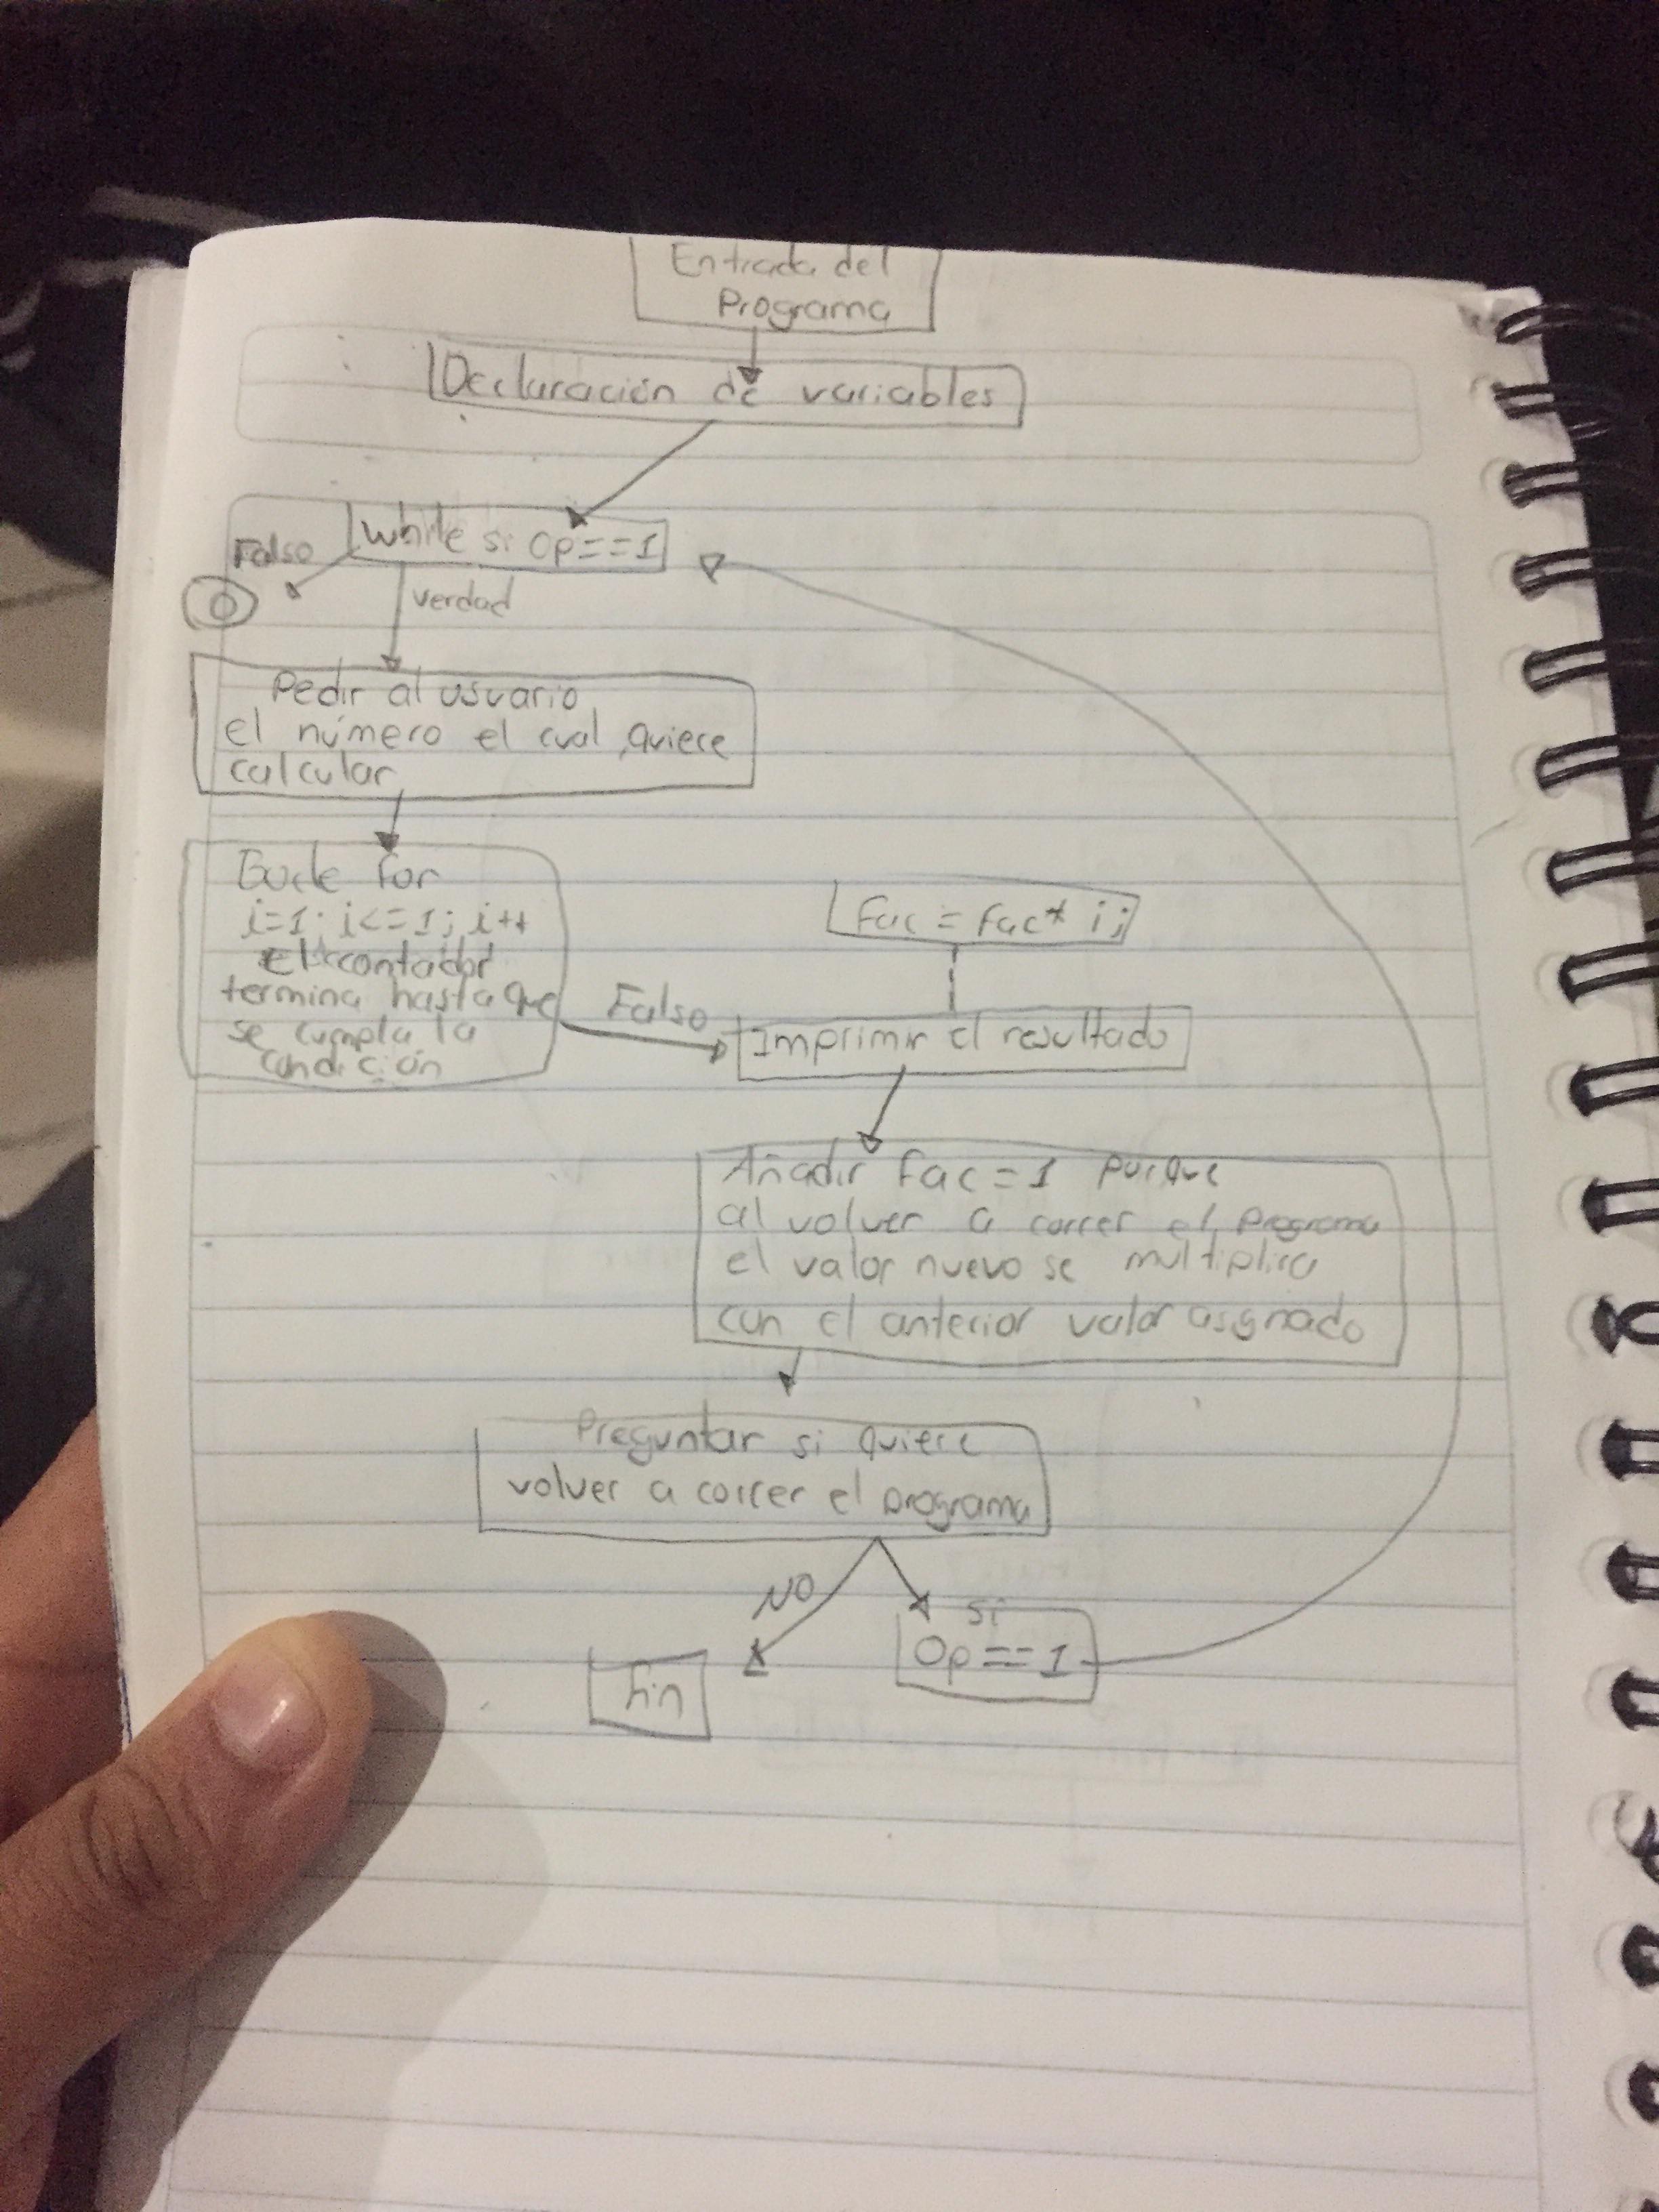 Entrada del
Programa
Declaración de variables
While si Op==1
Falso
O
verdad
Pedir al usuario
el número el cual quiere
calcular
Bucle for
i=1; i<=1; i++
el contador
termina hasta que
se cumpla la
condición
Falso
Fac = fac* i;
Imprimir el resultado
Añadir Fac=1 porque
al volver a correr el programa
el valor nuevo se multiplica
con el anterior valor asignado
Preguntar si quiere
volver a correr el programa
NO
Si
Op==1
Fin